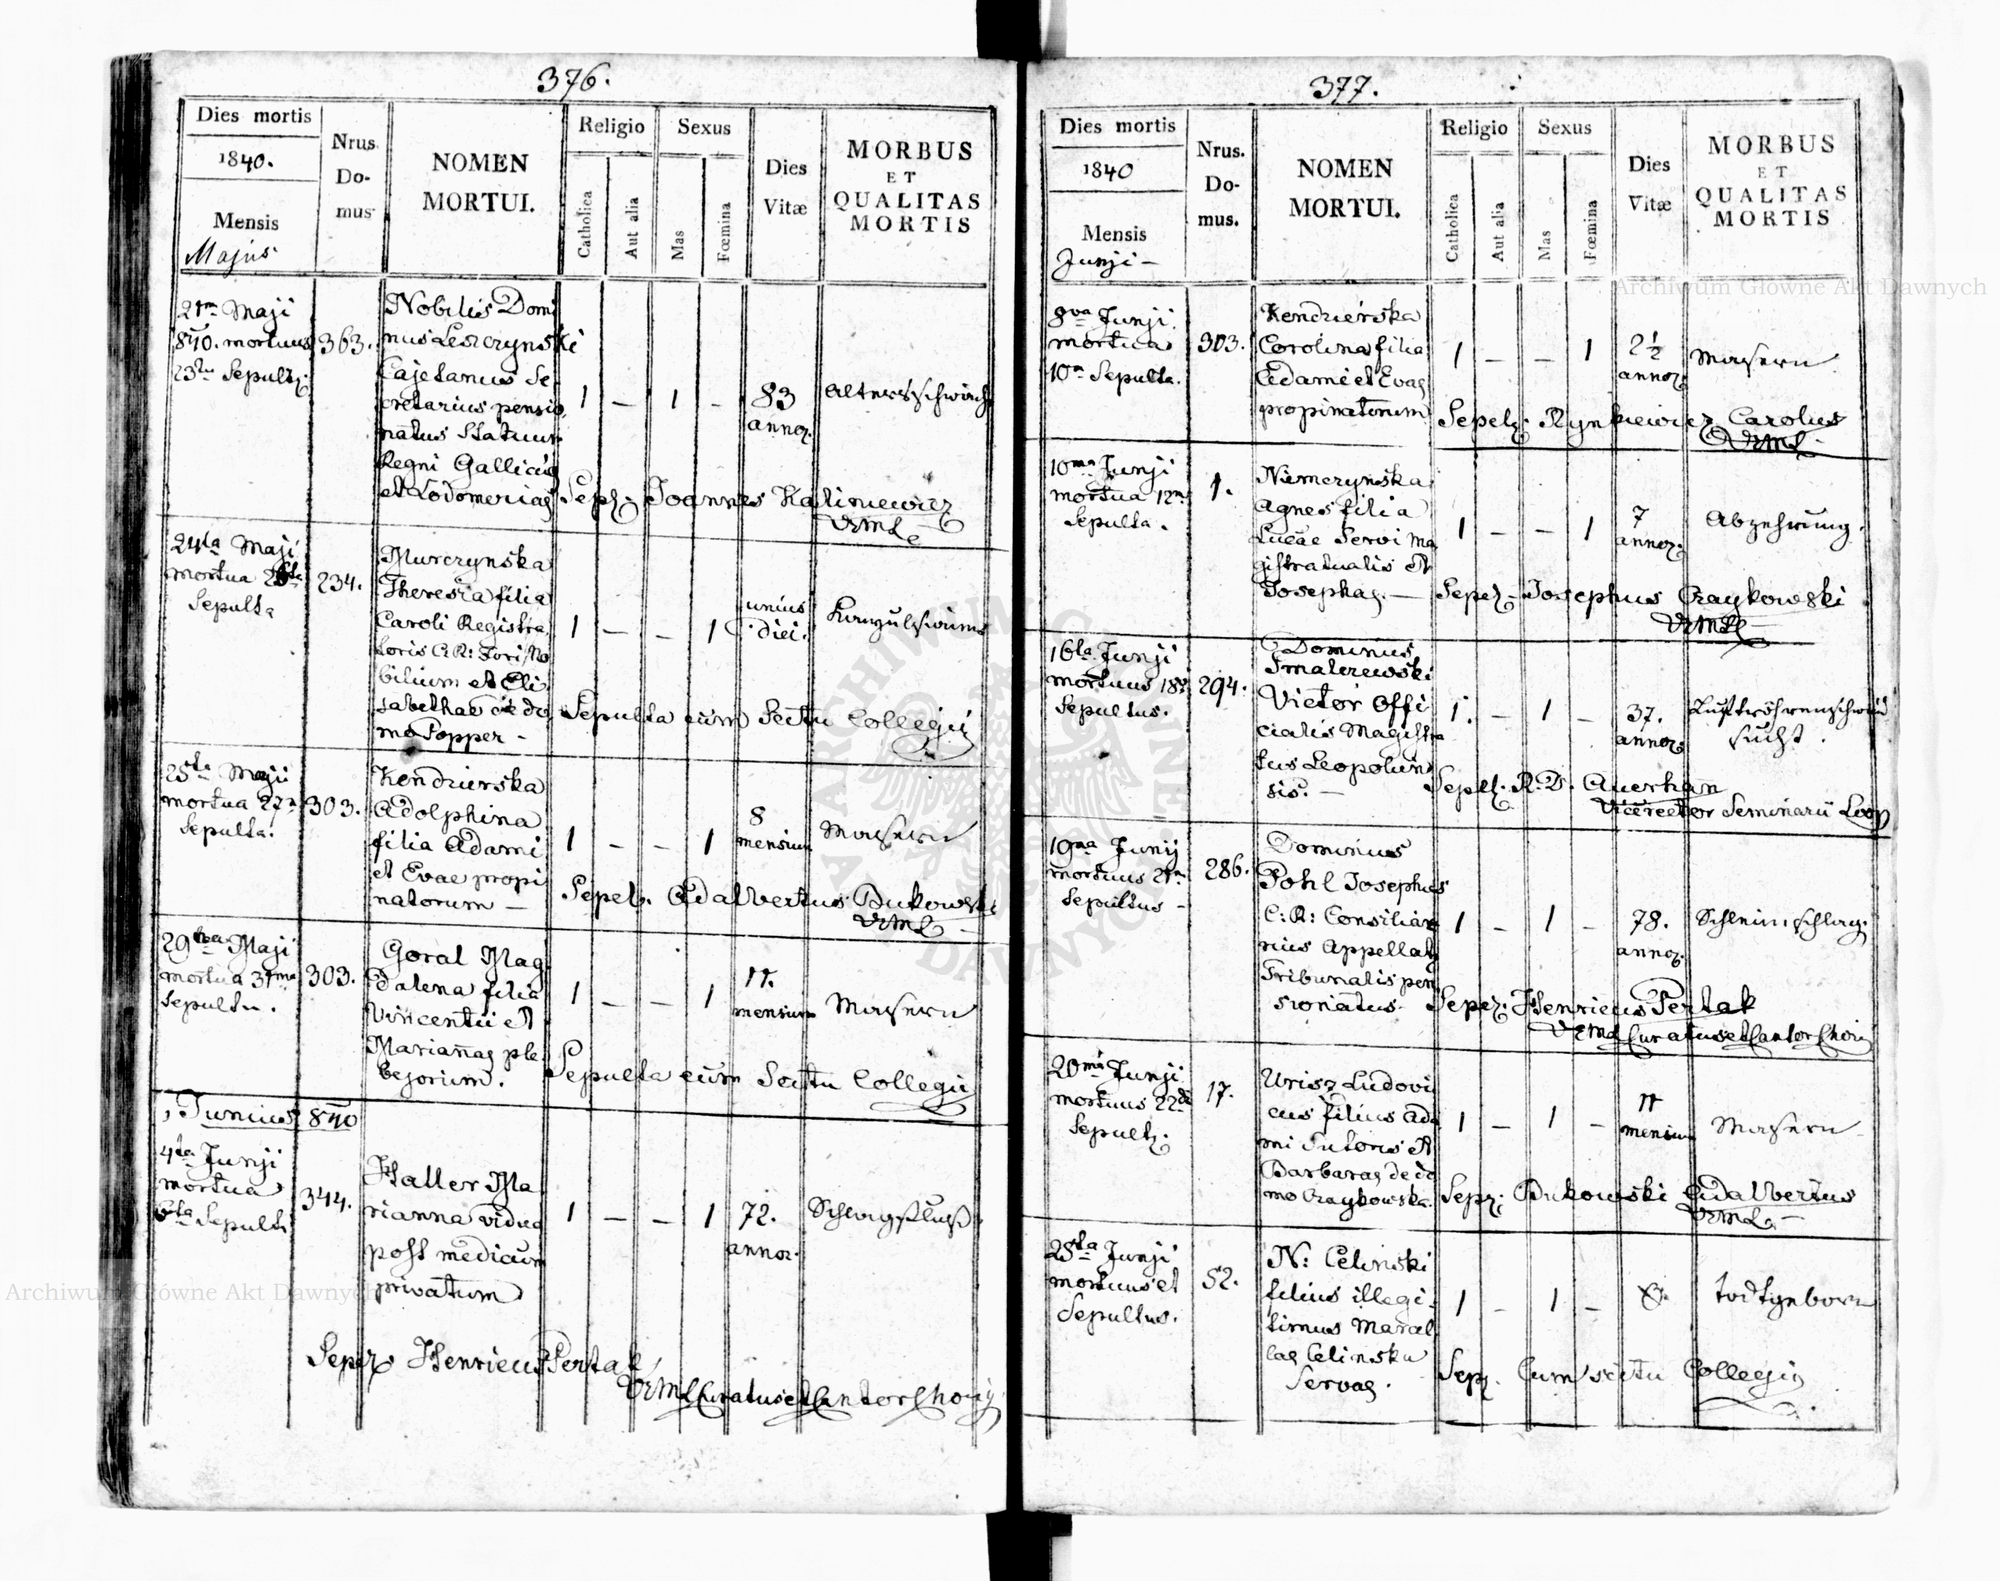 376.
Dies mortis
1840.
Mensis
Majus
Nrus
Do-
mus
NOMEN
MORTUI.
Religio
Catholica
Aut alia
Sexus
Mas
Fœmina
Dies
Vitæ
MORBUS
ET
QUALITAS
MORTIS
21ma Maji
840. mortuus
23tia Sepult:
363.
Nobilis Domi
nus Leszczynski
Cajetanus Se
cretarius pensio
natus Statuum
Regni Galliciae
et Lodomeriae
1 – 1 –
83
annor.
Altersschwäche
Sepel: Joannes Kaliniewicz
VRML
24ta Maji
mortua
Sepulta
234.
Murczynska
Theresia filia
Caroli Registra
toris C.R: Fori No
bilium et Eli
sabethae de do
mo Popper –
1 – – 1
unius
diei.
Konvulsionen
Sepulta cum Scitu Collegii
25ta Maji
mortua 27a
Sepulta.
303.
Kendzierska
Adolphina
filia Adami
et Evae propi
natorum –
1 – – 1
8
mensium
Masern
Sepel. Adalbertus Bukowski
VRML
29na Maji
mortua 31ma
Sepulta.
303.
Goral Mag
dalena filia
Vincentii et
Mariañae ple
bejorium.
1 – – 1
11.
mensium
Masern
Sepulta cum Scitu Collegii
Junius 840
4ta Junji
mortua
6ta Sepulta
344.
Haller Ma
rianna vidua
post medicum
privatum
1 – – 1
72.
annor.
Schlagfluß
Sepel. Henricus Pertak
VRML Curatus et Cantor Chori
377.
Dies mortis
1840
Mensis
Junji –
Nrus.
Do-
mus.
NOMEN
MORTUI.
Religio
Catholica
Aut alia
Sexus
Mas
Fœmina
Dies
Vitæ
MORBUS
ET
QUALITAS
MORTIS
8va Junji
mortua
10a Sepulta.
303.
Kendzierska
Carolina filia
Adami et Evae
propinatorum
1 – – 1
2½
annor.
Masern
Sepel: Rynkiewicz Carolus
VRML
10ma Junji
mortua 12a
Sepulta.
1.
Niemczynska
Agnes filia
Lucae Servi Ma
gistratualis et
Josephae. –
1 – – 1
7
annor.
Abzehrung.
Sepel – Josephus Czaykowski
VRML
16ta Junji
mortuus 18va
Sepultus.
294.
Dominus
Smalzewski
Victor Offi
cialis Magistra
tus Leopolien
sis. –
1. – 1 –
37.
annor.
sucht.
Sepel. R.D. Auerhan
Vicerector Seminarii Leop
19na Junij
mortuus 21ma
Sepultus –
286.
Dominus
Pohl Josephus
C: R: Consilia
rius Appellat
Tribunalis pen
sionatus.
1 – 1 –
78.
annor.
Schleimschlag.
Sepel: Henricus Pertak
VRML Curatus et Cantor Chori
20ma Junji
mortuus 22da
Sepult.
17.
Urisz Ludovi
cus filius Ada
mi Sutoris et
Barbarae de do
mo Czaykowska.
1 – 1 –
11
mensium
Masern
Sepel: Bukowski Adalbertus
VRML
25ta Junji
mortuus et
Sepultus.
52.
N: Celinski
filius illegi
timus
Celinska
Servae.
1 – 1 –
todtgeborn
Sepel. Cum scitu Collegii
Archiwum Główne Akt Dawnych
Archiwum Główne Akt Dawnych
ARCHIWUM GŁÓWNE AKT DAWNYCH